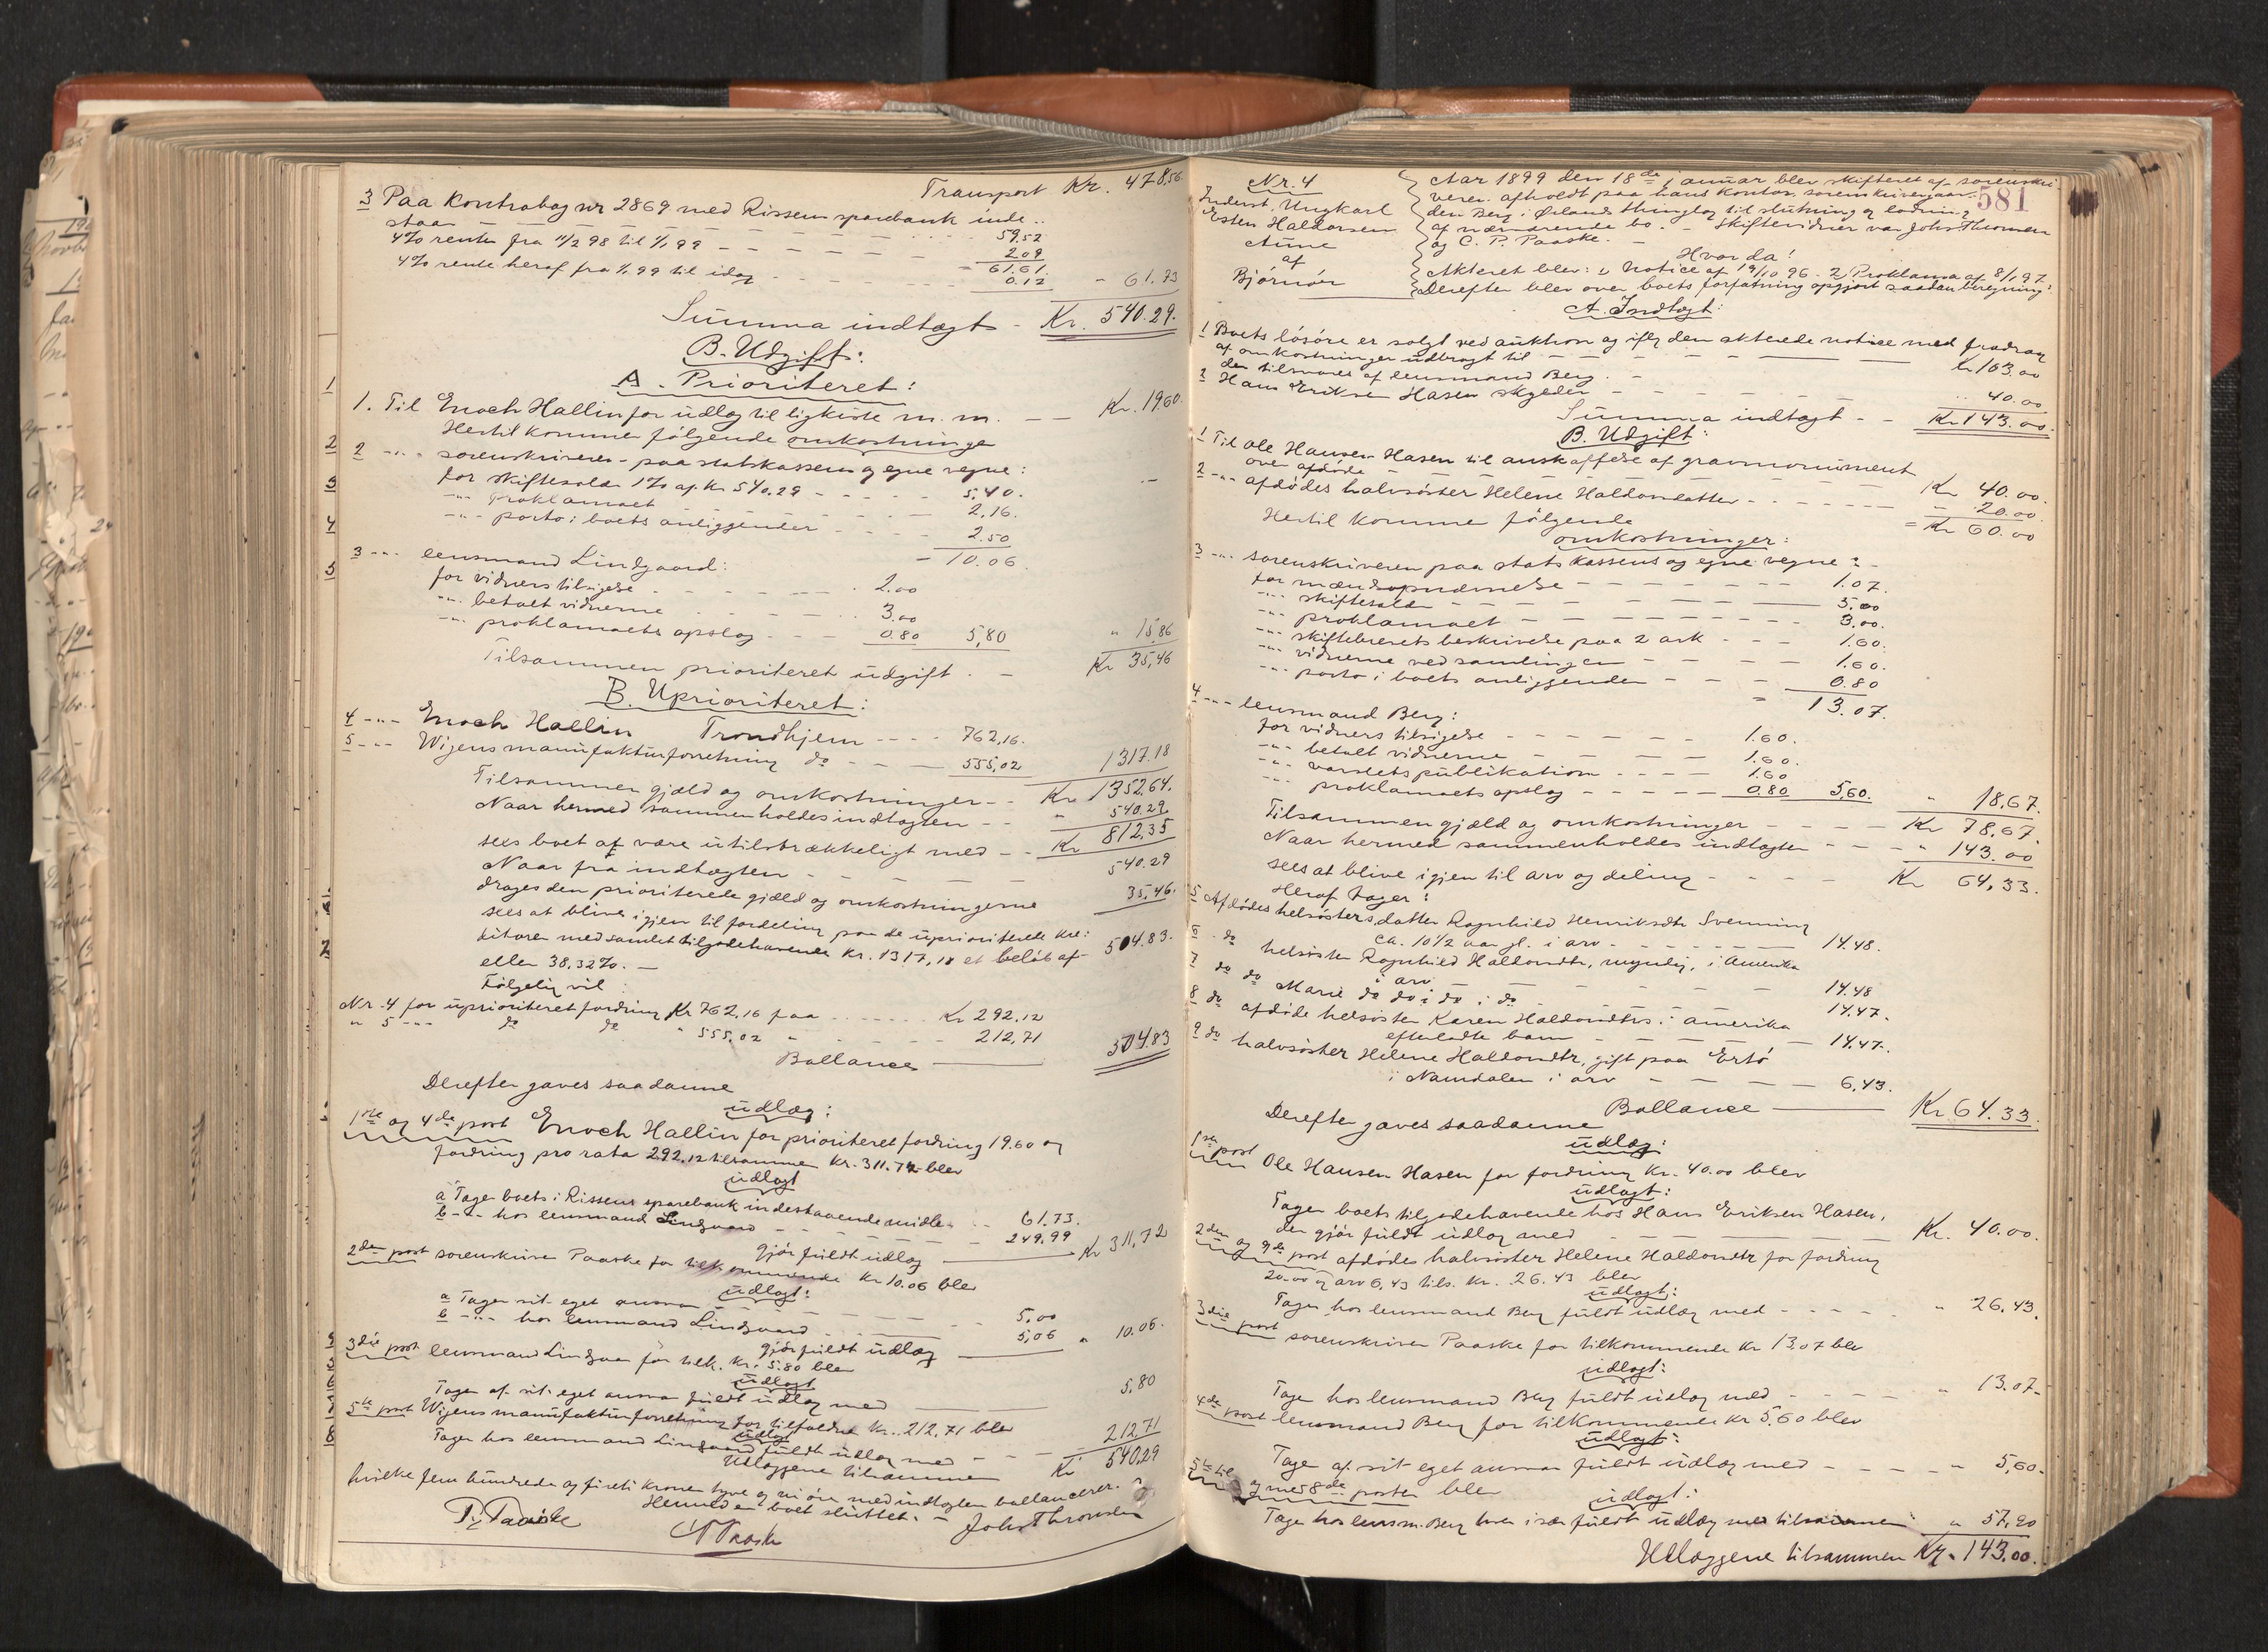 Transport Kr. 478,56
3 Paa Kontrabog nr 2869 med Rissens sparebank inde-
staar 59.52
4% renter fra 11/2 98 til 1/1 99 2.09
61.61
4% rente heraf fra 1/1 99 til idag 0.12 " 61.73
Summa indtægt Kr. 540.29.
B. Udgift:
A. Prioriteret:
1. Til Enoch Hallin for udlæg til ligkiste m. m. Kr. 19.60.
Hertil kommer følgende omkostninger
2 -"- sorenskriveren paa statskassens og egne vegne:
for skiftesalær 1% af Kr 540.29 5,40.
-"- proklamaet 2,16.
-"- porto i boets anliggender 2.50
10.06.
3 -"- lensmand Lindgaard:
for vidners tilsigelse 2.00
-"- betalt vidnerne 3.00
-"- proklamaets opslag 0.80 5,80 " 15,86
Tilsammen prioriteret udgift Kr 35,46
B. Uprioriteret:
4 -"- Enoch Hallin Trondhjem 762,16.
5 -"- Wigens manufakturforretning do 555,02 1317.18
Tilsammen gjæld og omkostninger Kr 1352,64.
Naar hermed sammenholdes indtægten " 540.29.
sees boet at være utilstrækkeligt med Kr 812,35
Naar fra indtægten 540.29
drages den prioriterede gjæld og omkostningerne 35,46.
sees at blive igjen til fordeling paa de uprioriterede kre-
ditorer med samlet tilgodehavende Kr. 1317,18 et beløb af 504.83.
eller 38,32%.
Følgelig vil:
Nr. 4 for uprioriteret fordring Kr 762,16 faa Kr 292,12
" 5 -"- do do " 555,02 - 212,71 504.83
Ballance
Derefter gaves saadanne
udlæg:
1ste og 4de post Enoch Hallin for prioriteret fordring 19.60 og
fordring pro rata 292.12 tilsammen Kr. 311.72 blev
udlagt
a Tager boets i Rissens sparebank indestaaende midler 61.73.
b -"- hos lensmand Lindgaard 249,99
gjør fuldt udlæg Kr 311,72
2den post sorenskriver Paaske for tilkommende Kr 10.06 blev
udlagt:
a Tager sit eget ansvar 5,00
b -"- hos lensmand Lindgaard 5,06 " 10.06.
gjør fuldt udlæg
3die post lensmand Lindgaard for tilk. Kr. 5.80 blev
udlagt
Tager af sit eget ansvar fuldt udlæg med 5,80
5te post Wigens manufakturforretning for tilfaldne Kr. 212,71 blev
udlagt
Tager hos lensmand Lindgaard fuldt udlæg med 212,71
Udlæggene tilsammen Kr 540,29
hvilke fem hundrede og firti kroner tyve og ni øre med indtægten ballancerer.
Hermed er boet sluttet.
P. Paaske
Paaske
Johs Thronsen
581
Nr. 4
Inderst, Ungkarl
Esten Haldorsen
Aune
af
Bjørnør
Aar 1899 den 18de januar blev skifteret af sorenskri-
veren afholdt paa hans kontor sorenskrivergaar-
den Berg i Ørlands thinglag til slutning og lodning
af nærværende bo. - Skiftevidner var Johs Thronsen
og C. P. Paaske.
Hvorda!
Akteret blev: 1, Notice af 19/10 96. 2, Proklama af 8/1 97.
Derefter blev over boets forfatning opgjort saadan beregning:
A. Indtægt:
1 Boets løsøre er solgt ved auktion og iflg den akterede notice med fradrag
af omkostninger udbragt til kr 103.00
der tilsvares af lensmand Berg.
2 Hans Eriksen Hasen skylder 40.00
Summa indtægt Kr 143.00.
B. Udgift:
1 Til Ole Hansen Hasen til anskaffelse af gravmonument
over afdøde Kr 40.00.
2 -"- afdødes halvsøster Helene Haldorsdatter " 20.00.
= Kr 60.00
Hertil kommer følgende
omkostninger:
3 -"- sorenskriveren paa statskassens og egne vegne:
for mændsopnævnelse 1.07.
-"- skiftesalær 5,00
-"- proklamaet 3.00.
-"- skiftebrevets beskrivelse paa 2 ark 1.60.
-"- vidnerne ved samlingen 1.60.
-"- porto i boets anliggender 0.80
= 13.07.
4 -"- lensmand Berg:
for vidners tilsigelse 1.60.
-"- betalt vidnerne 1.60.
-"- varslets publikation 1.60
-"- proklamaets opslag 0.80 5,60. " 18,67.
Tilsammen gjæld og omkostninger Kr 78,67.
Naar hermed sammenholdes indtægten " 143.00
sees at blive igjen til arv og deling Kr 64,33.
Heraf tager:
5 Afdødes helsøsters datter Ragnhild Henriksdtr Svenning
ca. 10 1/2 aar gl. i arv 14.48.
6 do helsøster Ragnhild Haldorsdtr, myndig, i Amerika
i arv 14.48
7 do do Marie do do i do i do 14.47.
8 do afdøde helsøster Karen Haldorsdtrs i Amerika
efterladte barn 14.47.
9 do halvsøster Helene Haldorsdtr, gift paa Ertø
i Namdalen i arv 6,43.
Ballance Kr 64.33
Derefter gaves saadanne
udlæg:
1ste post Ole Hansen Hasen for fordring Kr. 40.00 blev
udlagt:
Tager boets tilgodehavende hos Hans Eriksen Hasen,
der gjør fuldt udlæg med Kr. 40.00.
2den og 9de post afdødes halvsøster Helene Haldorsdtr for fordring
20.00 og arv 6,43 tils. Kr. 26.43 blev
udlagt:
Tager hos lensmand Berg fuldt udlæg med " 26,43.
3die post sorenskriver Paaske for tilkommende Kr 13,07 blev
udlagt:
Tager hos lensmand Berg fuldt udlæg med " 13.07.
4de post lensmand Berg for tilkommende Kr 5,60 blev
udlagt:
Tager af sit eget ansvar fuldt udlæg med " 5,60.
5te til og med 8de poster blev
udlagt:
Tager hos lensm. Berg hver især fuldt udlæg med tilsammen " 57,90
Udlæggene tilsammen Kr. 143.00.